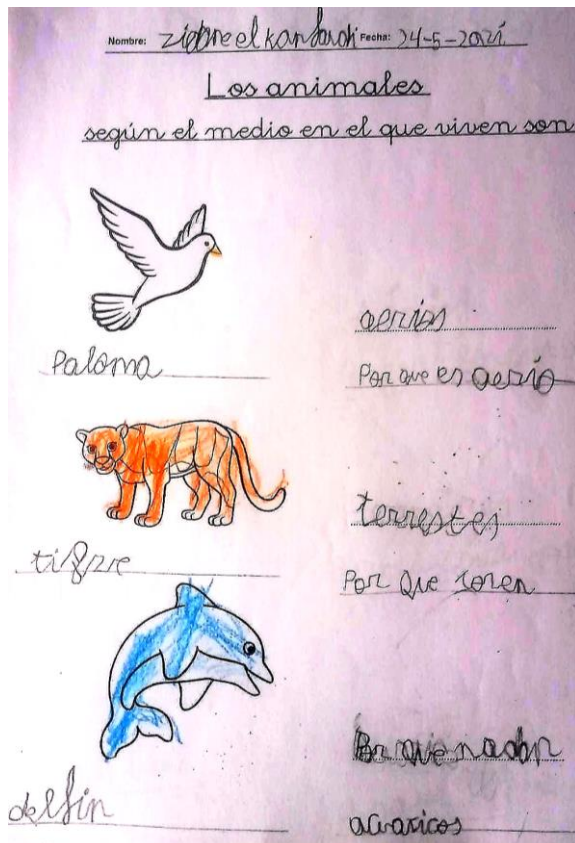 Nombre: el Fecha: 24-5-2021
Los animales
según el medio en el que viven son
aerios
Paloma
Por que es aerio
terrestes
tigre
Por que coren
Por que nadan
delfin
acuaticos